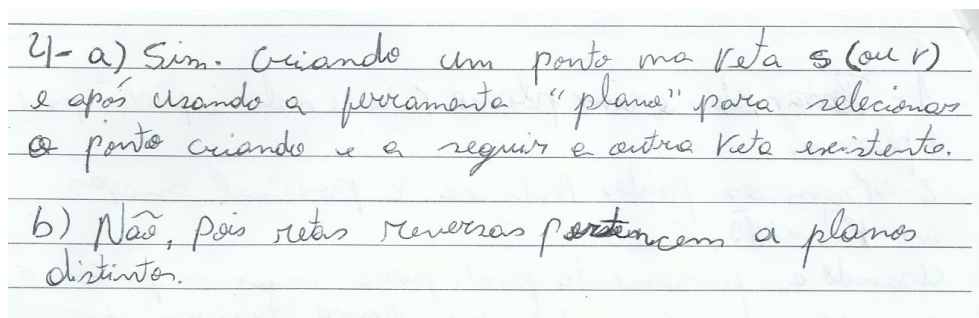 4- a) Sim. Criando um ponto na reta s (ou r)
e após usando a ferramenta "plano" para selecionar
o ponto criando e a seguir a outra reta existente.
b) Não, pois retas reversas pertencem a planos
distintos.